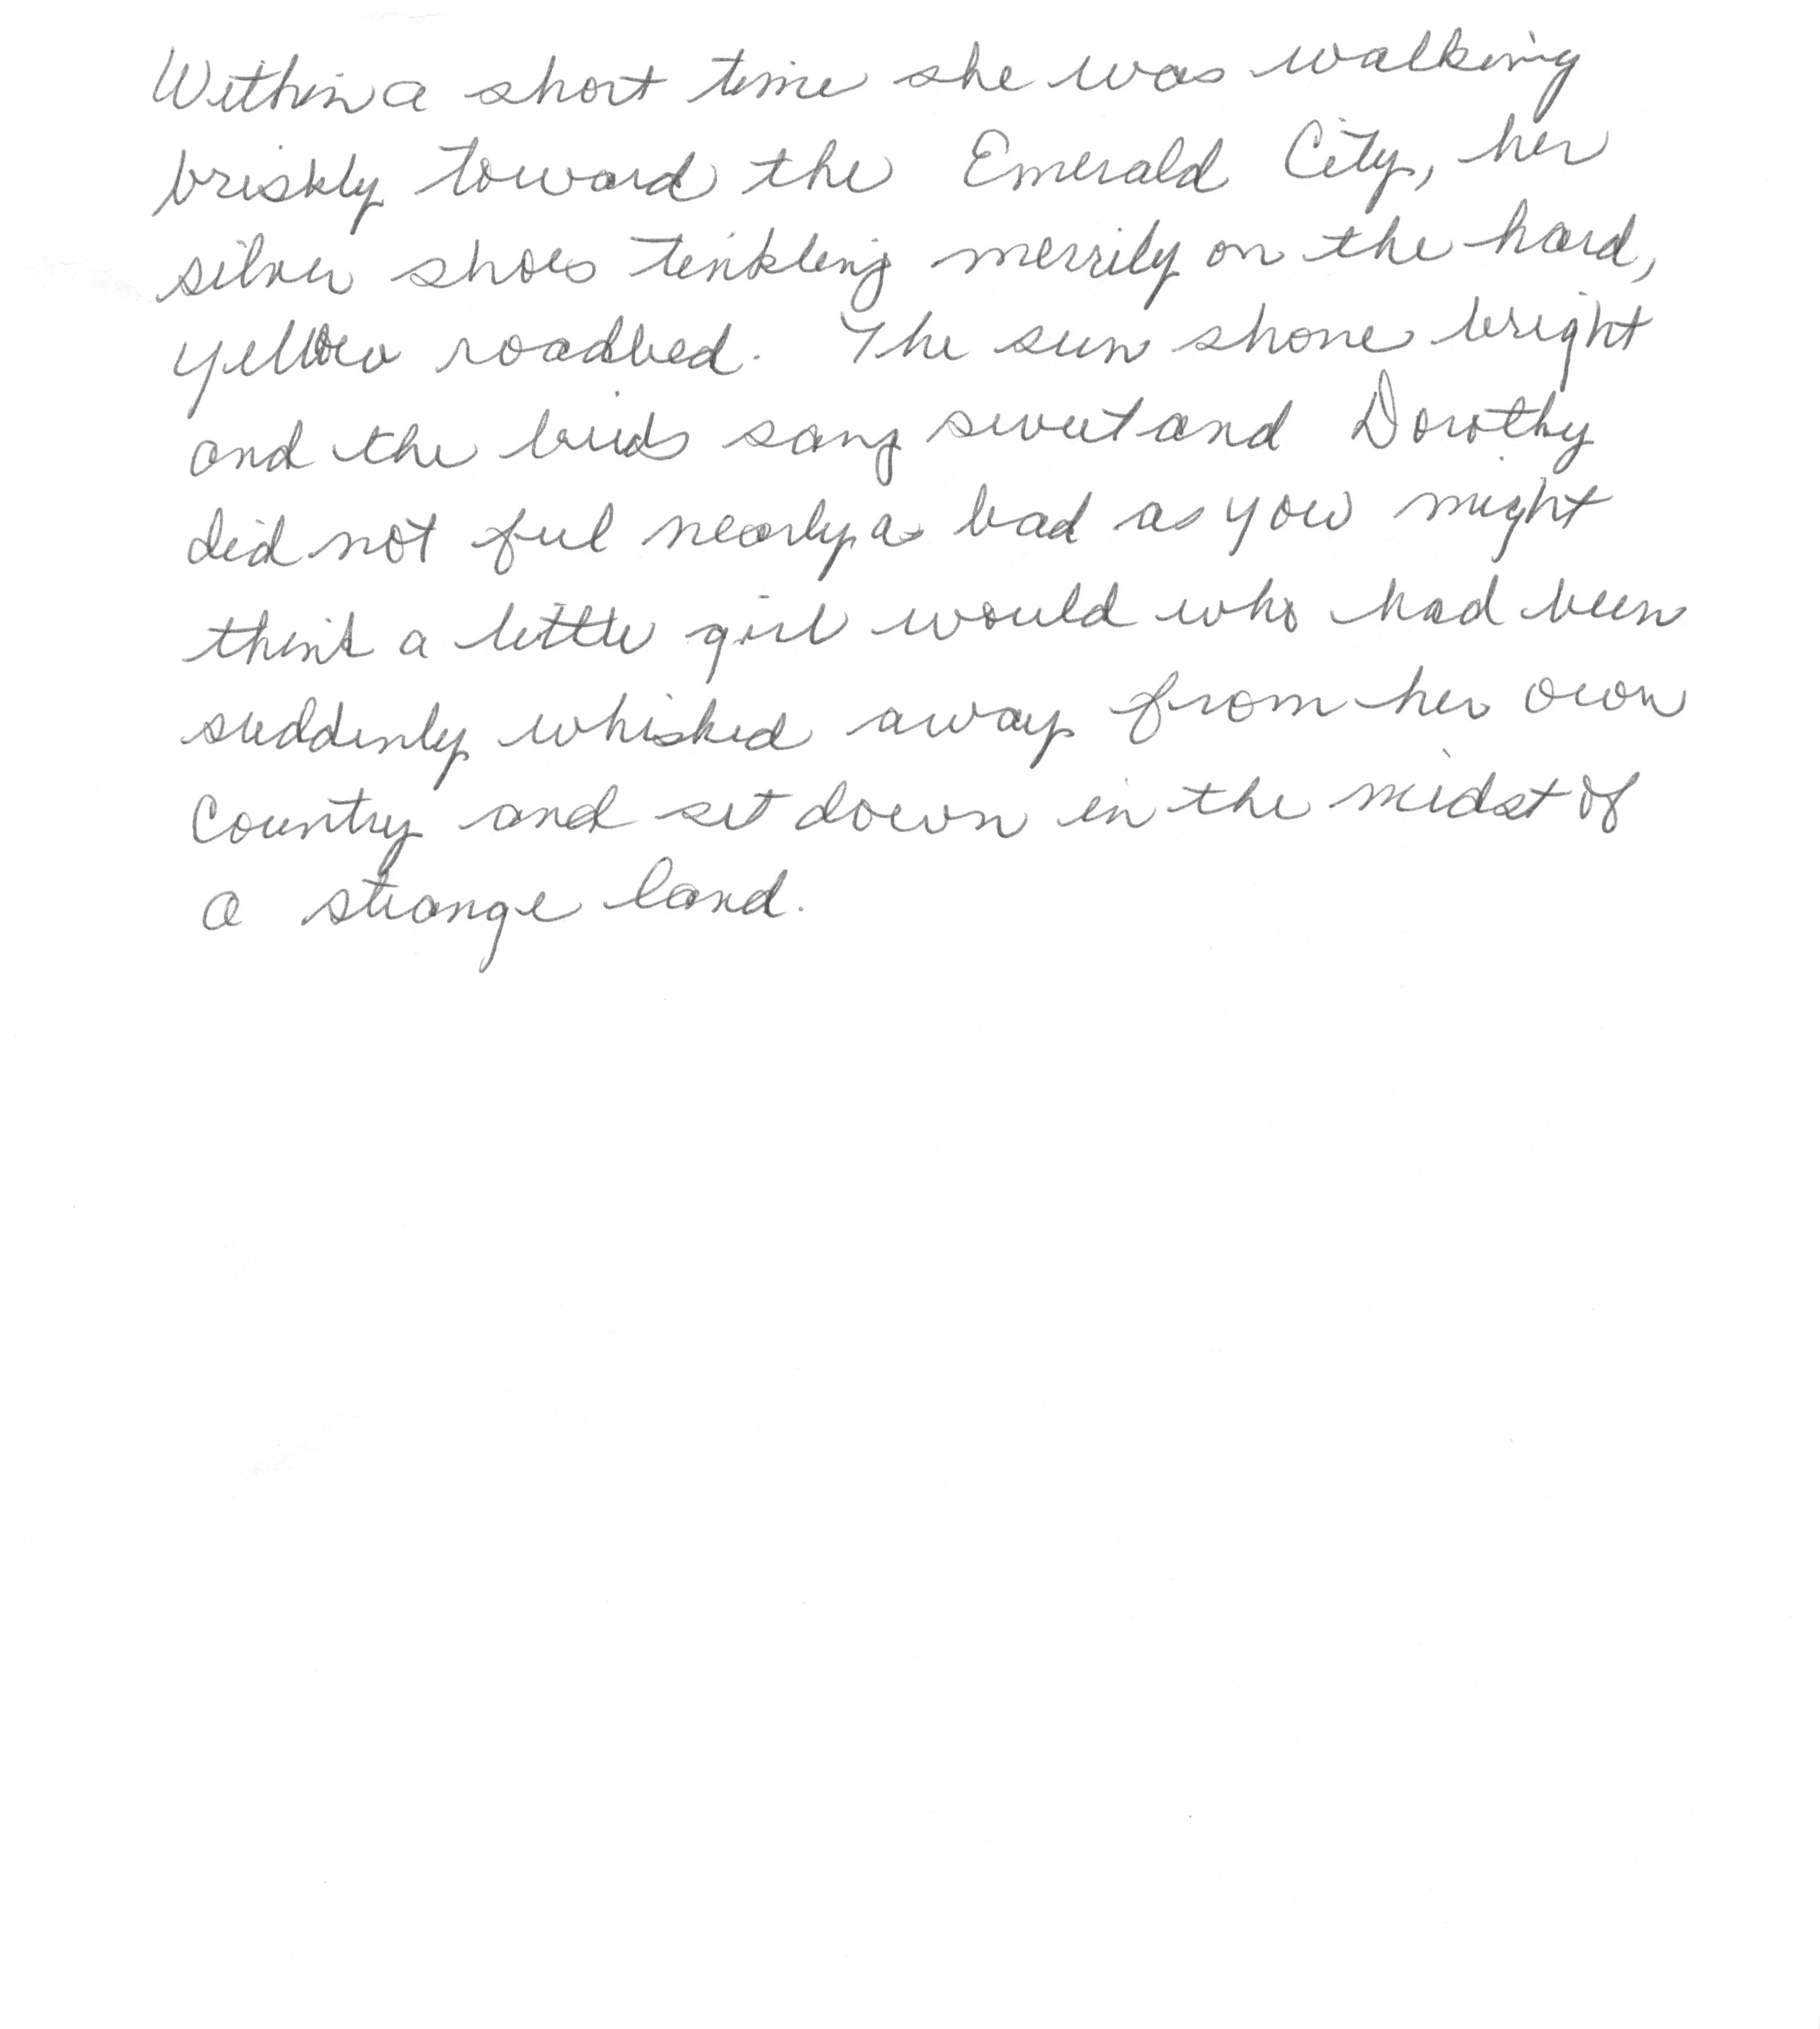 Within a short time she was walking
briskly toward the Emerald City, her
silver shoes tinkling merrily on the hard,
yellow roadbed. The sun shone bright
and the birds sang sweet and Dorothy
did not feel nearly as bad as you might
think a little girl would who had been
suddenly whisked away from her own
country and set down in the midst of
a strange land.